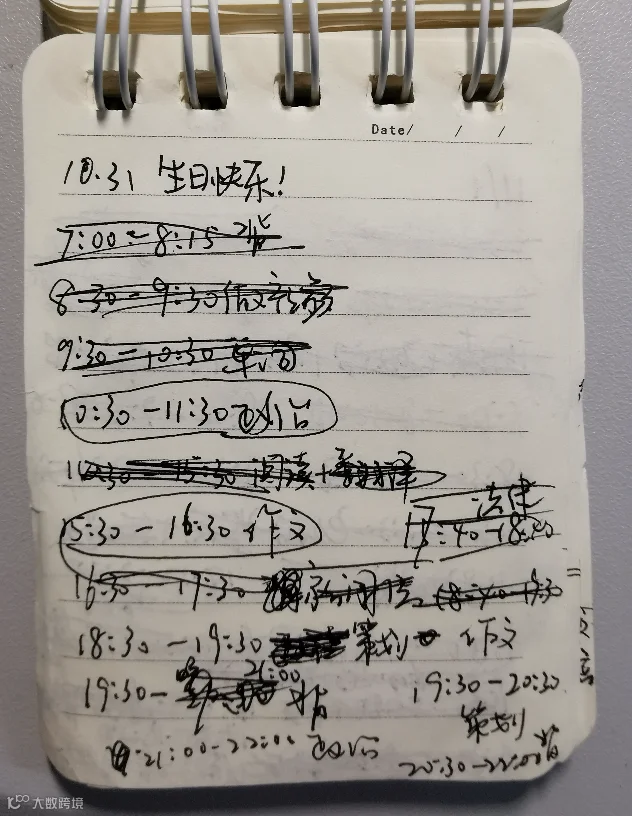 Date/ / /
10.31 生日快乐!
7:00-8:15 背
8:30-9:30 作文
9:30-10:30 单词
10:30-11:30 政治
15:30 阅读+翻译
15:30-16:30 作文
法律
17:40-18:40
16:30-17:30
18:40-19:30
18:30-19:30 策划 作文
19:30-21:00 背
19:30-20:30
策划
21:00-22:00 政治
20:30-22:00 背
大数跨境